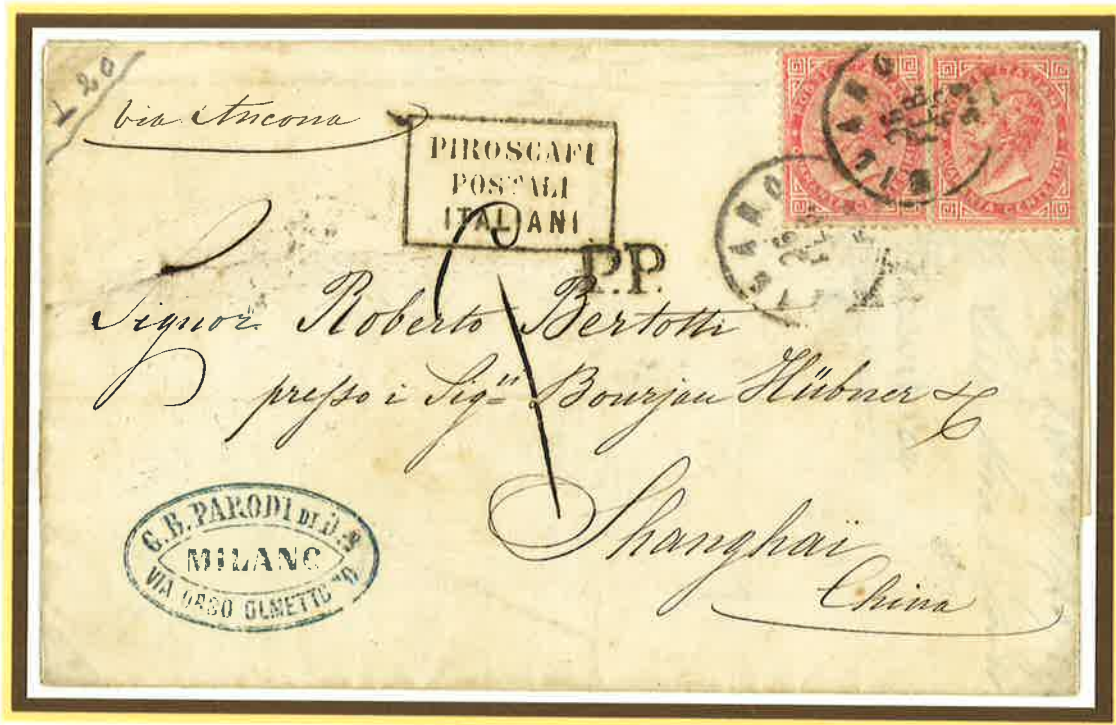 L 20
via Ancona
PIROSCAFI
POSTALI
ITALIANI
P.P.
MILANO
MILANO
Signor Roberto Bertotti
presso i Sigri Bourjau Hübner & C
Shanghaï
China
G. B. PARODI DI D.
MILANO
VIA ORSO OLMETTO